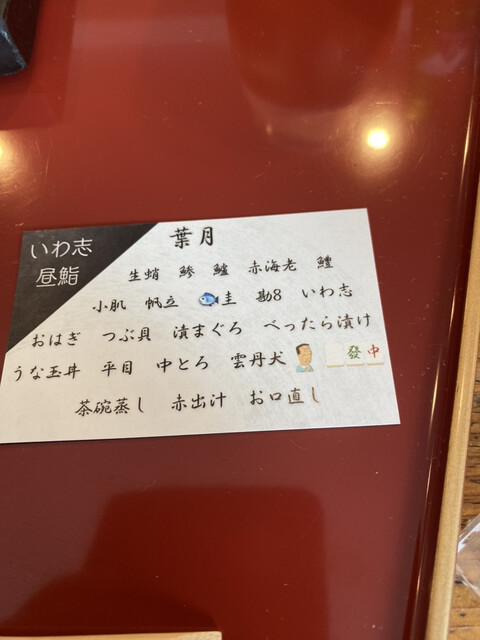 いわ志
昼鮨
葉月
生蛸 鯵 鱸 赤海老 鱧
小肌 帆立 🐟圭 勘8 いわ志
おはぎ つぶ貝 漬まぐろ べったら漬け
うな玉丼 平目 中とろ 雲丹犬 發中
茶碗蒸し 赤出汁 お口直し